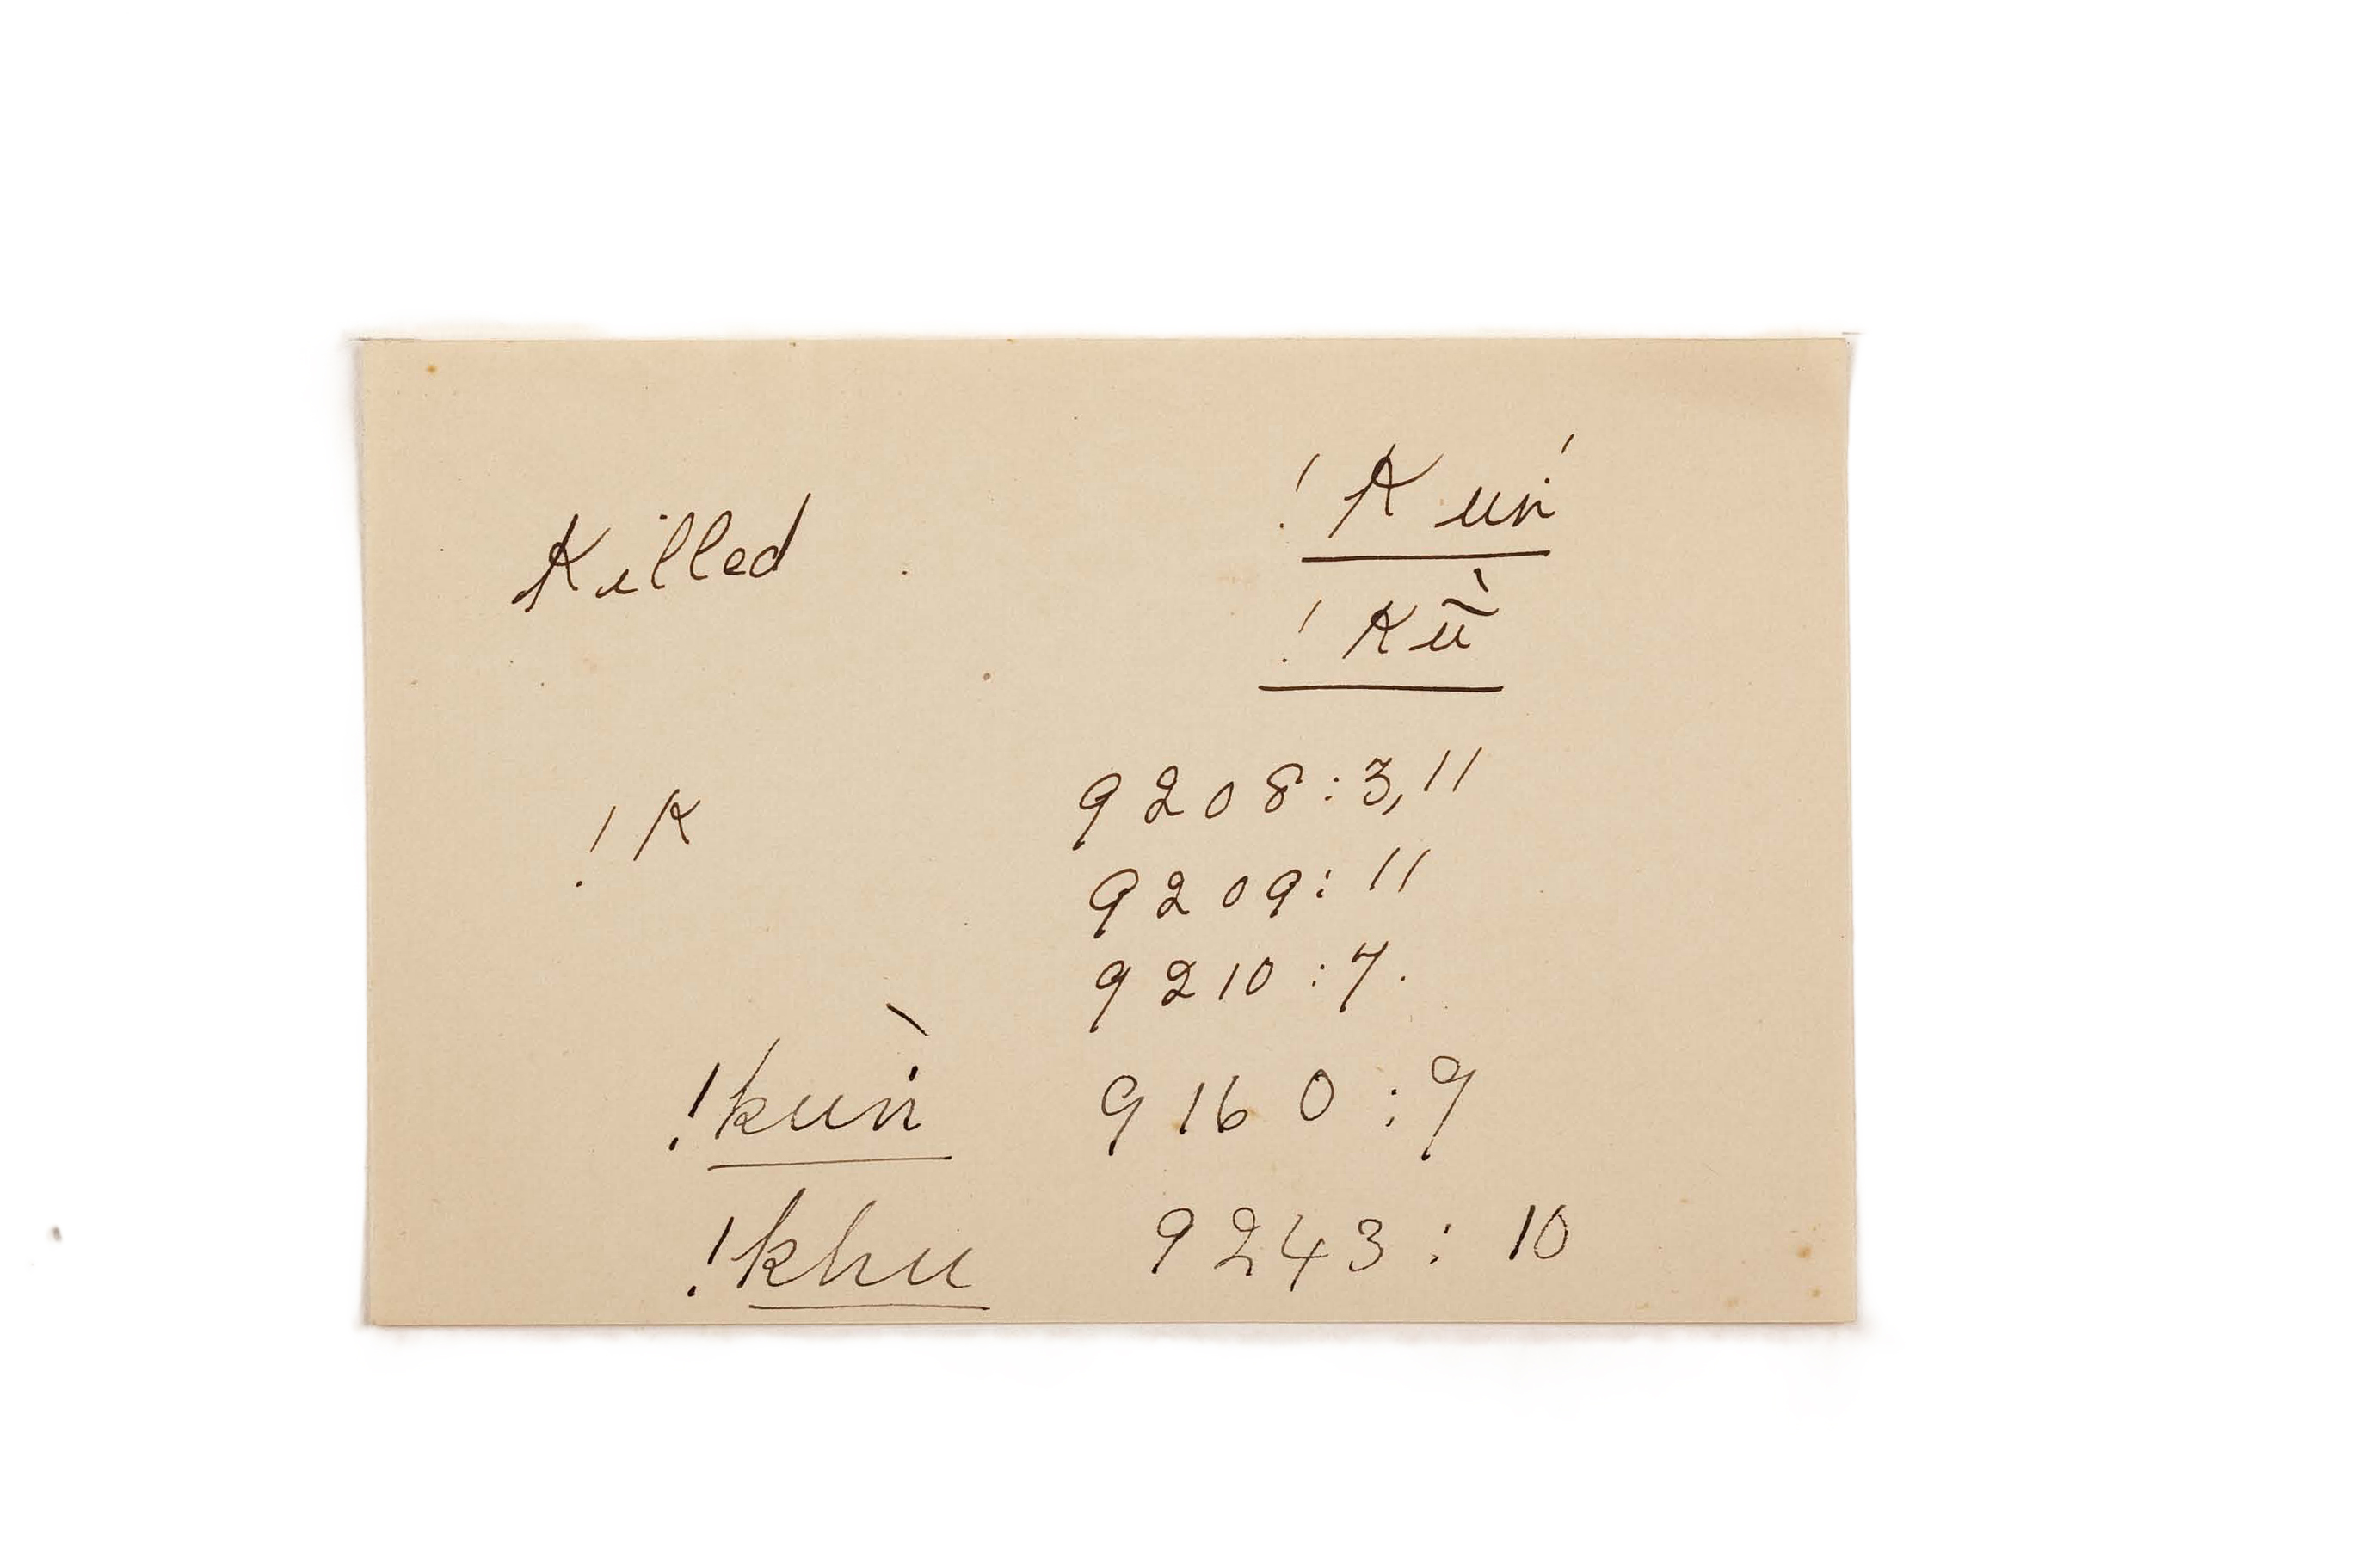 Killed ! Kuṅ́
! Kũ̀
! K 9208:3,11
9209:11
9210:7.
!kuṅ̀ 9160:9
!khu 9243:10